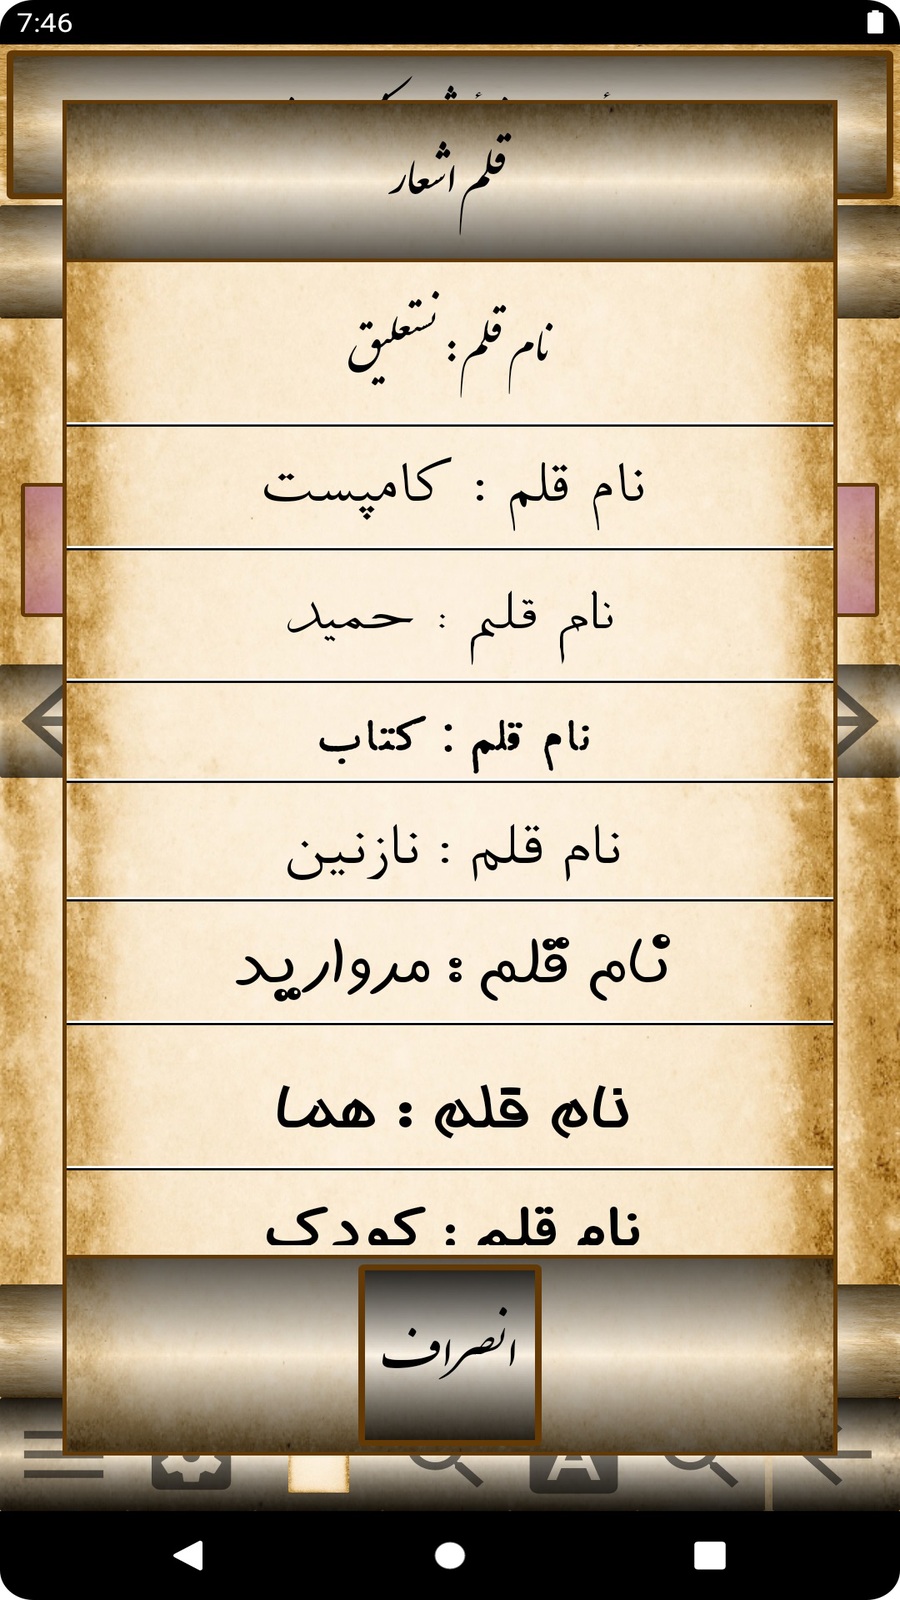 7:46
قلم اشعار
نام قلم : نستعلیق
نام قلم : کامپست
نام قلم : حمید
نام قلم : کتاب
نام قلم : نازنین
نام قلم : مروارید
نام قلم : هما
نام قلم : کودک
انصراف
A